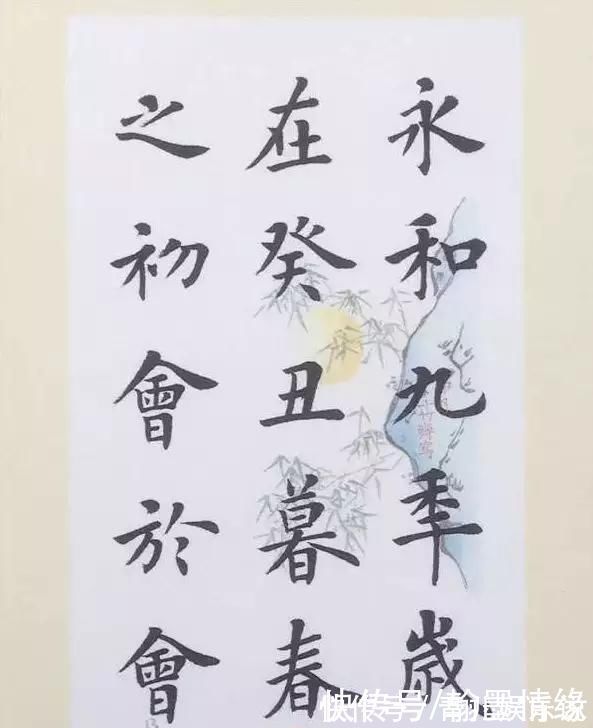 永和九年歲
在癸丑暮春
之初會於會
快传号/翰墨情缘